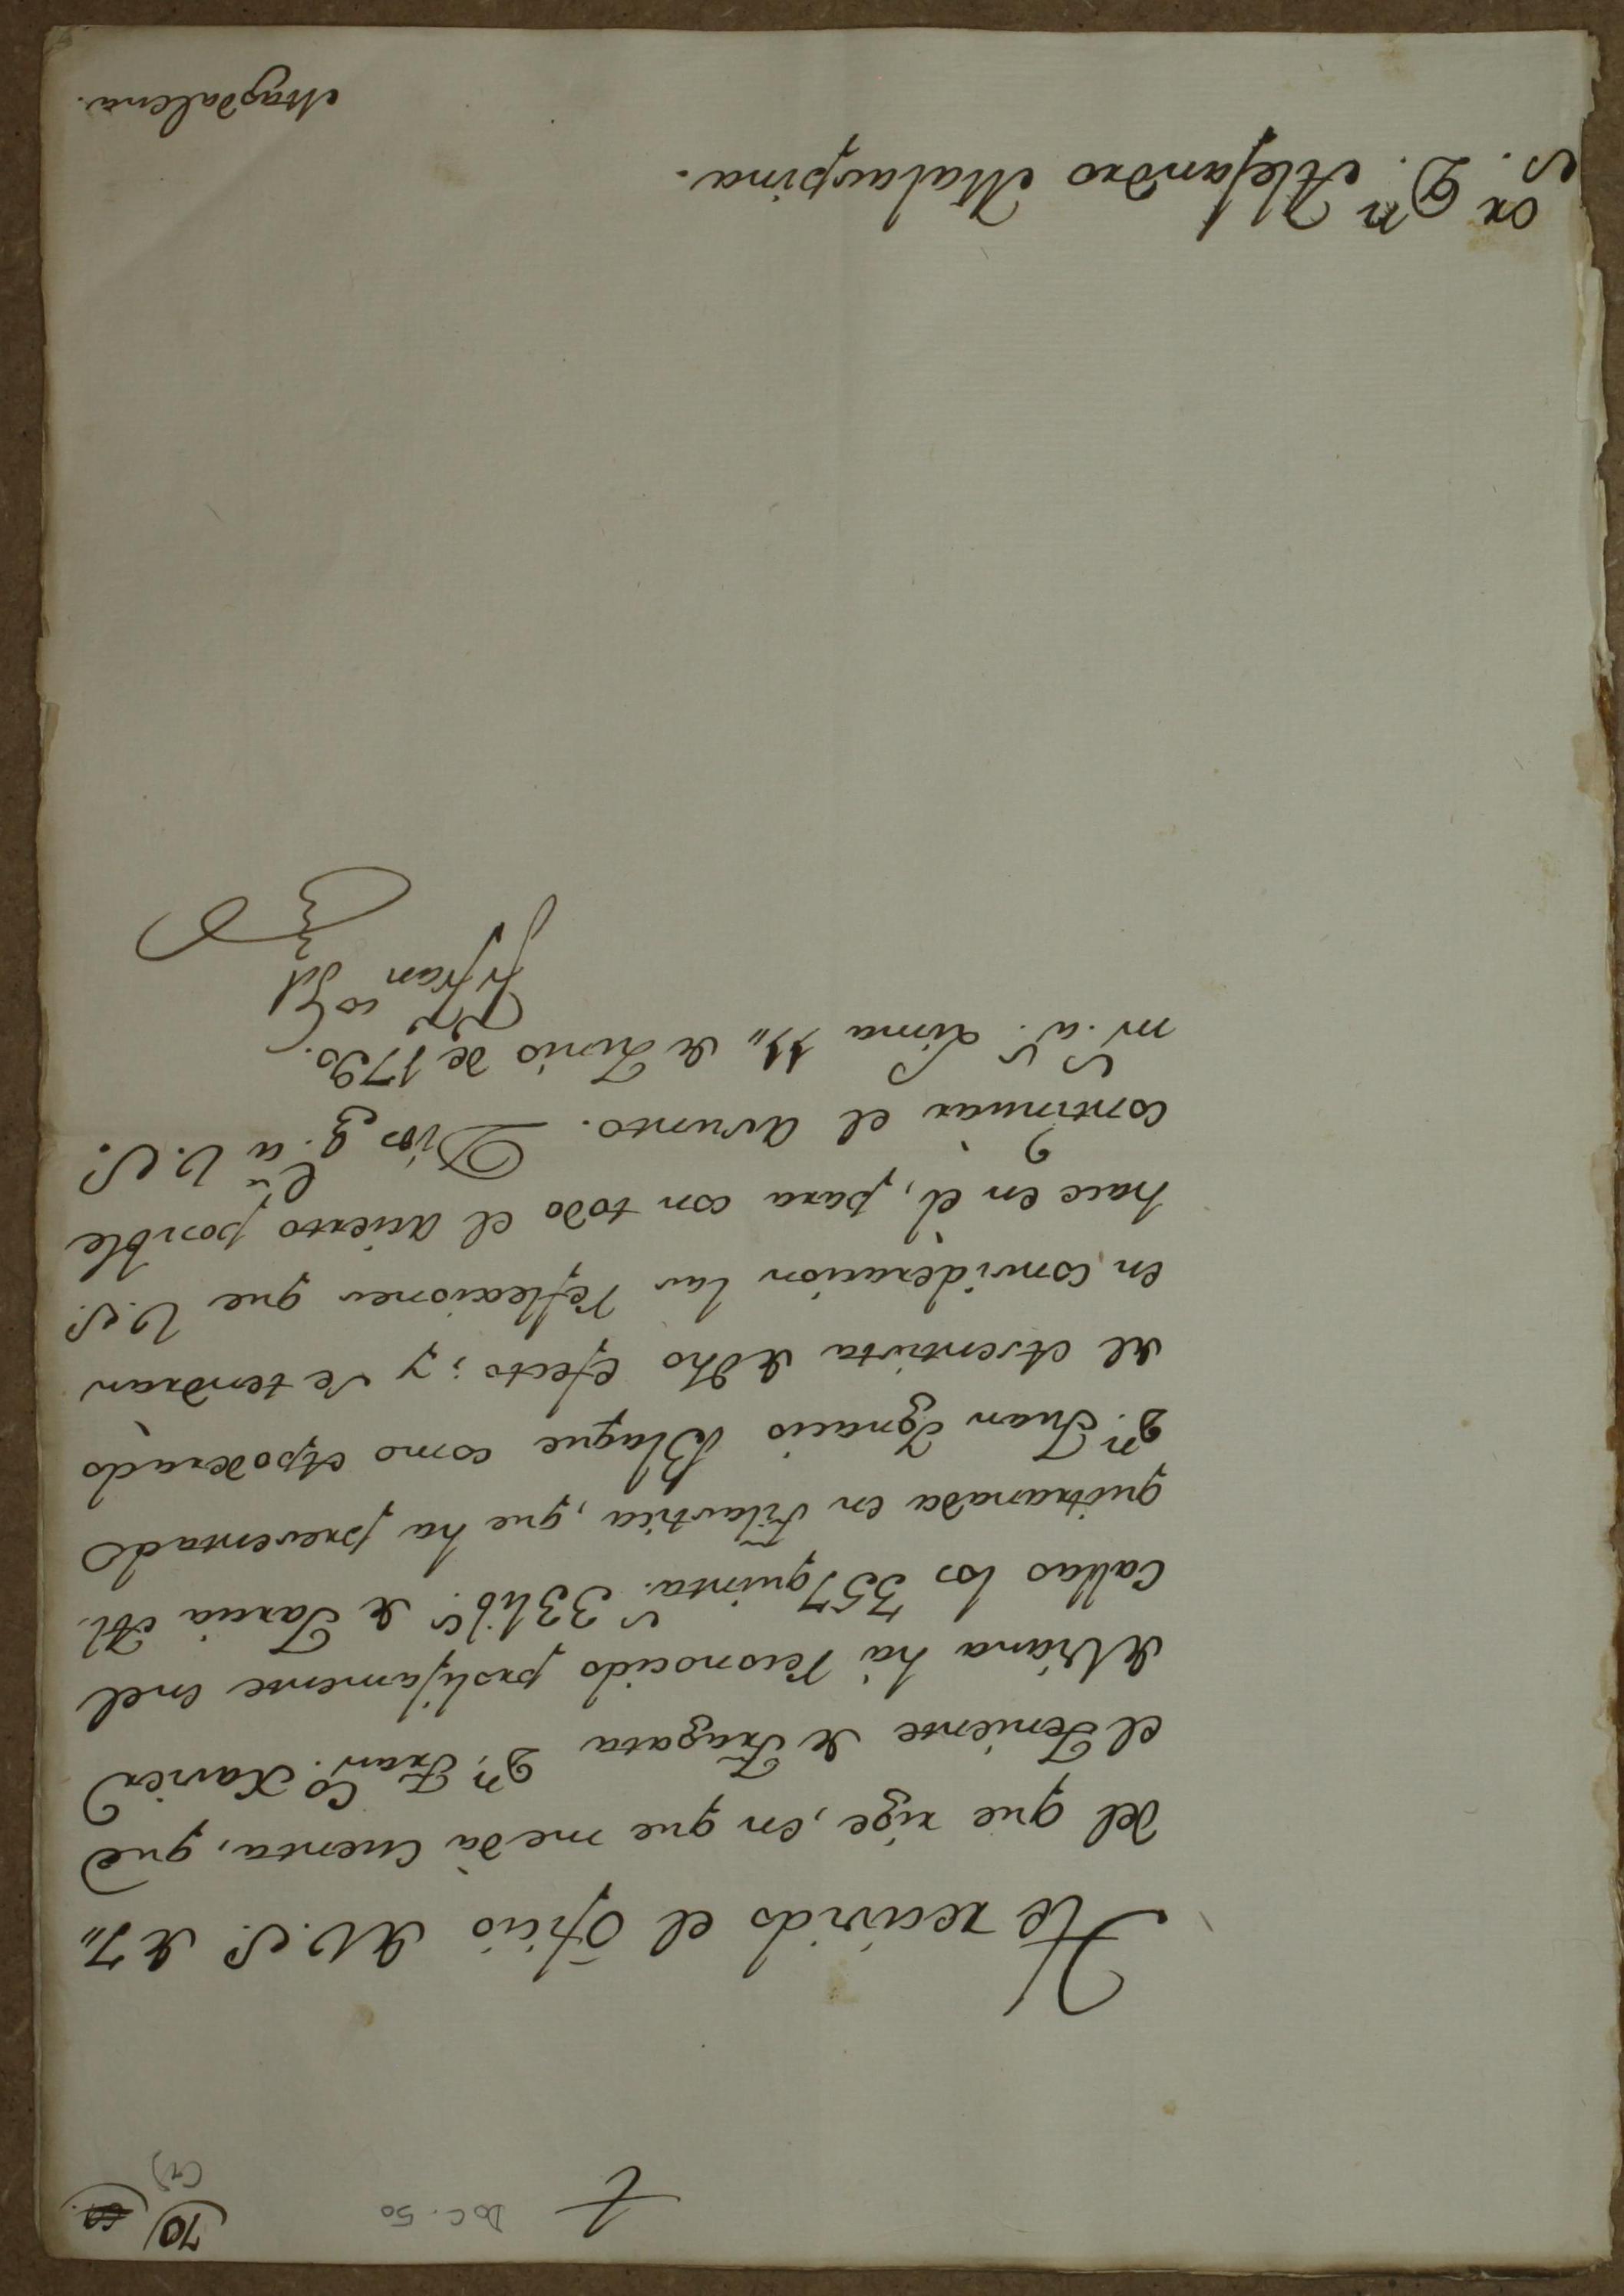 70
Doc. 50
He recivido el Oficio de V.S. de 7,,
del que rige, en que me dà Cuenta, que
el Teniente de Fragata Dn. Franco. Xavier
de Viana hà reconocido prolijamente en el
Callao los 357 quintas. 33 libs. de Jarcia Al-
quitranada en Filastica, que ha presentado
Dn. Juan Ignacio Blaque como Apoderado
del Asentista de dho efecto; y se tendran
en consideracion las reflecciones que V.S.
hace en él, para con todo el acierto posible
continuar el asunto. Dios gue. a V.S.
ms. as. Lima 11,, de Junio de 1790.
Fr. Franco Gil
Sor. Dn. Alejandro Malaspina.
Magdalena.